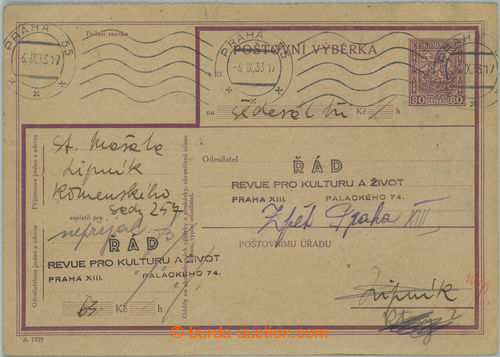 PRAHA 55
6.IX.33 17
Podací razítko
PRAHA 55
-6.IX.33 17
PRAHA
POŠTOVNÍ VÝBĚRKA
80 80
na šedesát tři Kč h
St. Mašata
Lipník
Komenského
sady 257
Příjmencovo jméno a adresa
zaplatil pro
nepřijato
ŘÁD
REVUE PRO KULTURU A ŽIVOT
PRAHA XIII. PALACKÉHO 74.
63 Kč h
A 1929
Odesílatel
ŘÁD
REVUE PRO KULTURU A ŽIVOT
PRAHA XIII. PALACKÉHO 74.
Zpět Praha XIII
POŠTOVNÍMU ÚŘADU
Lipník
burda-auction.com